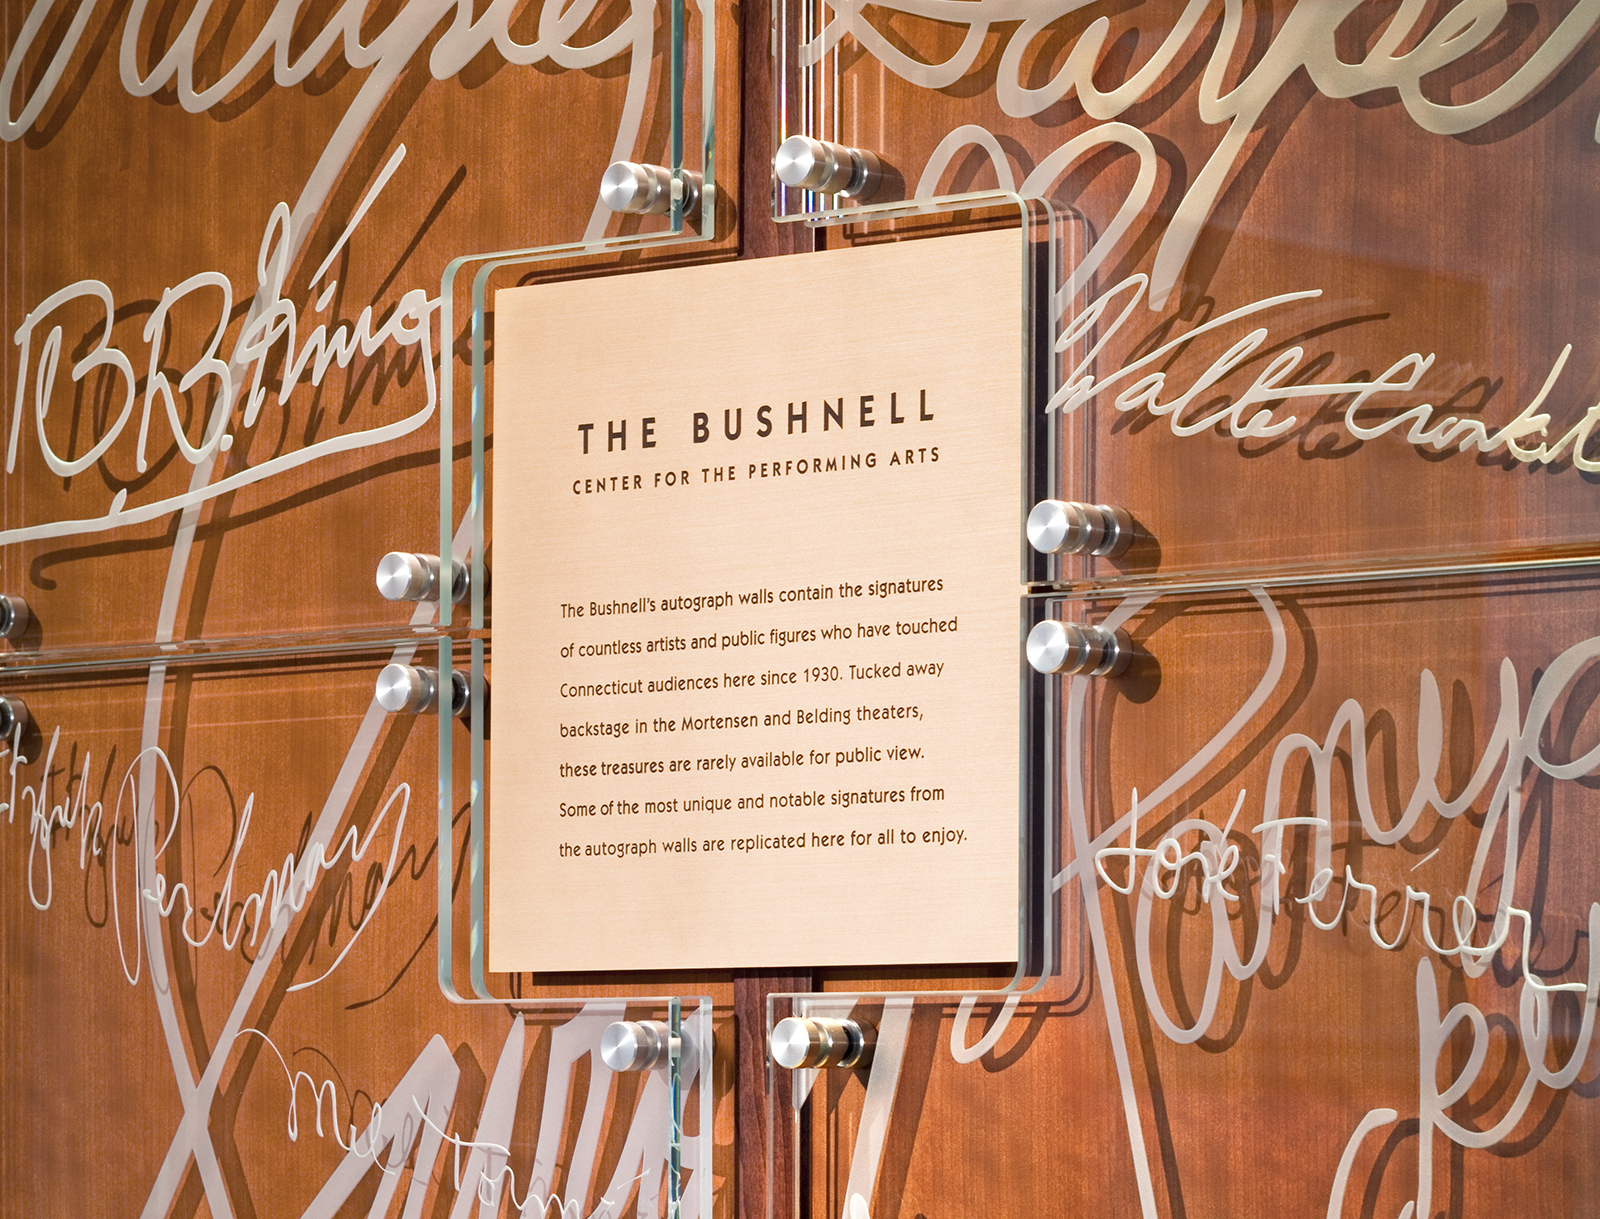 B.B. King
THE BUSHNELL
CENTER FOR THE PERFORMING ARTS
Walter Cronkit
The Bushnell's autograph walls contain the signatures
of countless artists and public figures who have touched
Connecticut audiences here since 1930. Tucked away
backstage in the Mortensen and Belding theaters,
these treasures are rarely available for public view.
Some of the most unique and notable signatures from
the autograph walls are replicated here for all to enjoy.
Perlman
José Ferrer
Mel Tormé